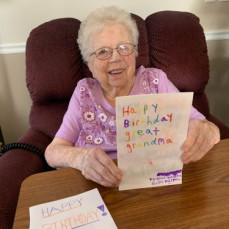 Happy
Birthday
great
grandma
HAPPY
BIRTHDAY